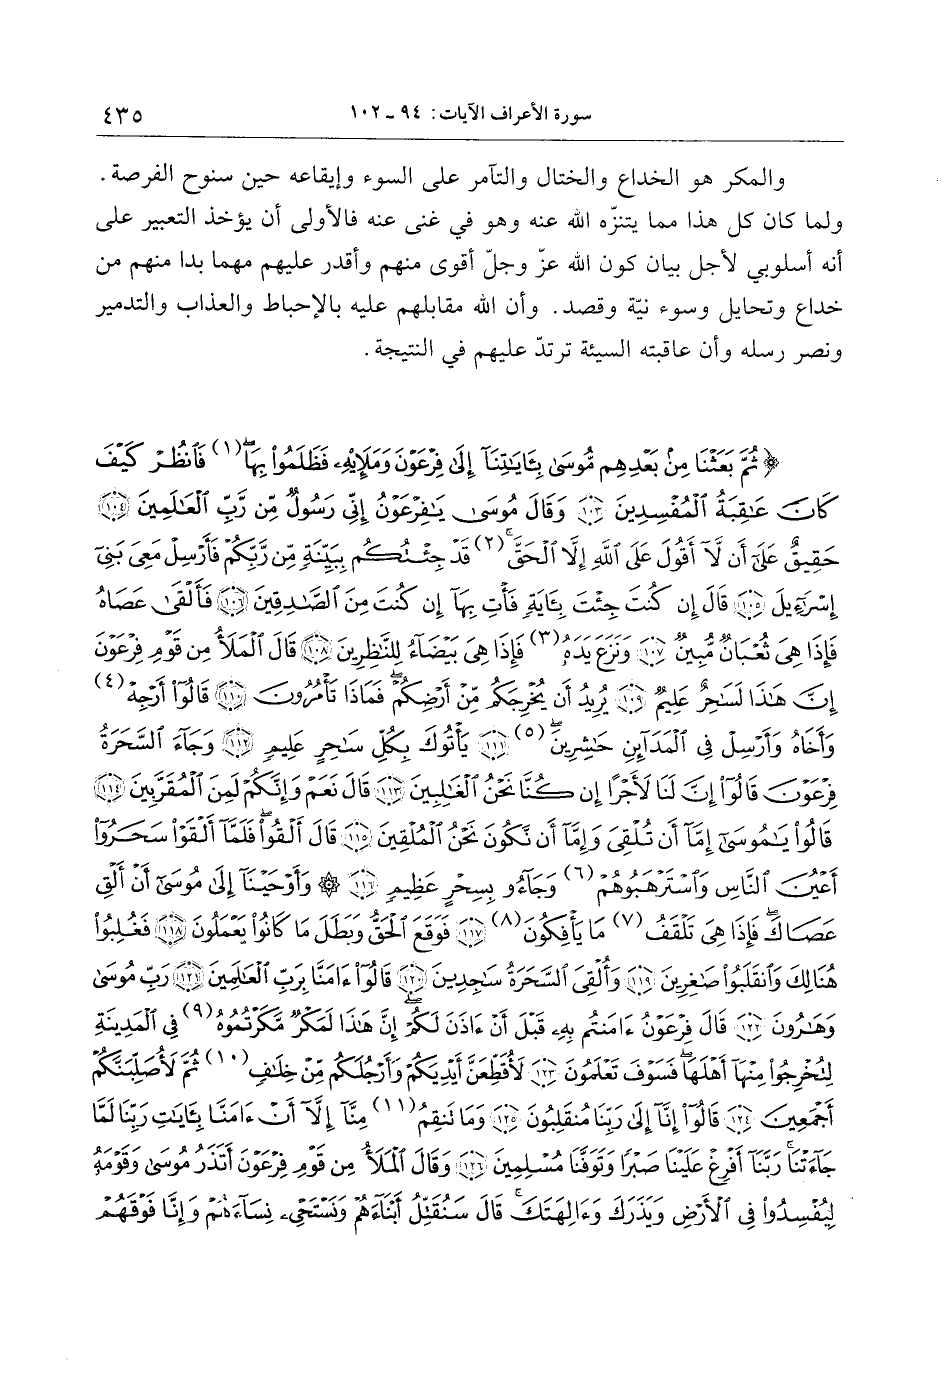 سورة الأعراف الآيات: ٩٤ - ١٠٢ ٤٣٥
والمكر هو الخداع والختال والتآمر على السوء وإيقاعه حين سنوح الفرصة.
ولما كان كل هذا مما يتنزّه الله عنه وهو في غنى عنه فالأولى أن يؤخذ التعبير على
أنه أسلوبي لأجل بيان كون الله عزّ وجلّ أقوى منهم وأقدر عليهم مهما بدا منهم من
خداع وتحايل وسوء نيّة وقصد. وأن الله مقابلهم عليه بالإحباط والعذاب والتدمير
ونصر رسله وأن عاقبته السيئة ترتدّ عليهم في النتيجة.
﴿ ثُمَّ بَعَثْنَا مِنْ بَعْدِهِم مُّوسَىٰ بِـَٔايَـٰتِنَآ إِلَىٰ فِرْعَوْنَ وَمَلَإِيْهِۦ فَظَلَمُوا۟ بِهَا ۖ (١) فَٱنظُرْ كَيْفَ
كَانَ عَـٰقِبَةُ ٱلْمُفْسِدِينَ ١٠٣ وَقَالَ مُوسَىٰ يَـٰفِرْعَوْنُ إِنِّى رَسُولٌ مِّن رَّبِّ ٱلْعَـٰلَمِينَ ١٠٤
حَقِيقٌ عَلَىٰٓ أَن لَّآ أَقُولَ عَلَى ٱللَّهِ إِلَّا ٱلْحَقَّ ۚ (٢) قَدْ جِئْتُكُم بِبَيِّنَةٍ مِّن رَّبِّكُمْ فَأَرْسِلْ مَعِىَ بَنِىٓ
إِسْرَٰٓءِيلَ ١٠٥ قَالَ إِن كُنتَ جِئْتَ بِـَٔايَةٍ فَأْتِ بِهَآ إِن كُنتَ مِنَ ٱلصَّـٰدِقِينَ ١٠٦ فَأَلْقَىٰ عَصَاهُ
فَإِذَا هِىَ ثُعْبَانٌ مُّبِينٌ ١٠٧ وَنَزَعَ يَدَهُۥ (٣) فَإِذَا هِىَ بَيْضَآءُ لِلنَّـٰظِرِينَ ١٠٨ قَالَ ٱلْمَلَأُ مِن قَوْمِ فِرْعَوْنَ
إِنَّ هَـٰذَا لَسَـٰحِرٌ عَلِيمٌ ١٠٩ يُرِيدُ أَن يُخْرِجَكُم مِّنْ أَرْضِكُمْ ۖ فَمَاذَا تَأْمُرُونَ ١١٠ قَالُوٓا۟ أَرْجِهْ (٤)
وَأَخَاهُ وَأَرْسِلْ فِى ٱلْمَدَآئِنِ حَـٰشِرِينَ ۖ (٥) ١١١ يَأْتُوكَ بِكُلِّ سَـٰحِرٍ عَلِيمٍ ١١٢ وَجَآءَ ٱلسَّحَرَةُ
فِرْعَوْنَ قَالُوٓا۟ إِنَّ لَنَا لَأَجْرًا إِن كُنَّا نَحْنُ ٱلْغَـٰلِبِينَ ١١٣ قَالَ نَعَمْ وَإِنَّكُمْ لَمِنَ ٱلْمُقَرَّبِينَ ١١٤
قَالُوا۟ يَـٰمُوسَىٰٓ إِمَّآ أَن تُلْقِىَ وَإِمَّآ أَن نَّكُونَ نَحْنُ ٱلْمُلْقِينَ ١١٥ قَالَ أَلْقُوا۟ ۖ فَلَمَّآ أَلْقَوْا۟ سَحَرُوٓا۟
أَعْيُنَ ٱلنَّاسِ وَٱسْتَرْهَبُوهُمْ (٦) وَجَآءُو بِسِحْرٍ عَظِيمٍ ١١٦ ۞ وَأَوْحَيْنَآ إِلَىٰ مُوسَىٰٓ أَنْ أَلْقِ
عَصَاكَ ۖ فَإِذَا هِىَ تَلْقَفُ (٧) مَا يَأْفِكُونَ (٨) ١١٧ فَوَقَعَ ٱلْحَقُّ وَبَطَلَ مَا كَانُوا۟ يَعْمَلُونَ ١١٨ فَغُلِبُوا۟
هُنَالِكَ وَٱنقَلَبُوا۟ صَـٰغِرِينَ ١١٩ وَأُلْقِىَ ٱلسَّحَرَةُ سَـٰجِدِينَ ١٢٠ قَالُوٓا۟ ءَامَنَّا بِرَبِّ ٱلْعَـٰلَمِينَ ١٢١ رَبِّ مُوسَىٰ
وَهَـٰرُونَ ١٢٢ قَالَ فِرْعَوْنُ ءَامَنتُم بِهِۦ قَبْلَ أَنْ ءَاذَنَ لَكُمْ ۖ إِنَّ هَـٰذَا لَمَكْرٌ مَّكَرْتُمُوهُ (٩) فِى ٱلْمَدِينَةِ
لِتُخْرِجُوا۟ مِنْهَآ أَهْلَهَا ۖ فَسَوْفَ تَعْلَمُونَ ١٢٣ لَأُقَطِّعَنَّ أَيْدِيَكُمْ وَأَرْجُلَكُم مِّنْ خِلَـٰفٍ (١٠) ثُمَّ لَأُصَلِّبَنَّكُمْ
أَجْمَعِينَ ١٢٤ قَالُوٓا۟ إِنَّآ إِلَىٰ رَبِّنَا مُنقَلِبُونَ ١٢٥ وَمَا تَنقِمُ (١١) مِنَّآ إِلَّآ أَنْ ءَامَنَّا بِـَٔايَـٰتِ رَبِّنَا لَمَّا
جَآءَتْنَا ۚ رَبَّنَآ أَفْرِغْ عَلَيْنَا صَبْرًا وَتَوَفَّنَا مُسْلِمِينَ ١٢٦ وَقَالَ ٱلْمَلَأُ مِن قَوْمِ فِرْعَوْنَ أَتَذَرُ مُوسَىٰ وَقَوْمَهُۥ
لِيُفْسِدُوا۟ فِى ٱلْأَرْضِ وَيَذَرَكَ وَءَالِهَتَكَ ۚ قَالَ سَنُقَتِّلُ أَبْنَآءَهُمْ وَنَسْتَحْىِۦ نِسَآءَهُمْ وَإِنَّا فَوْقَهُمْ